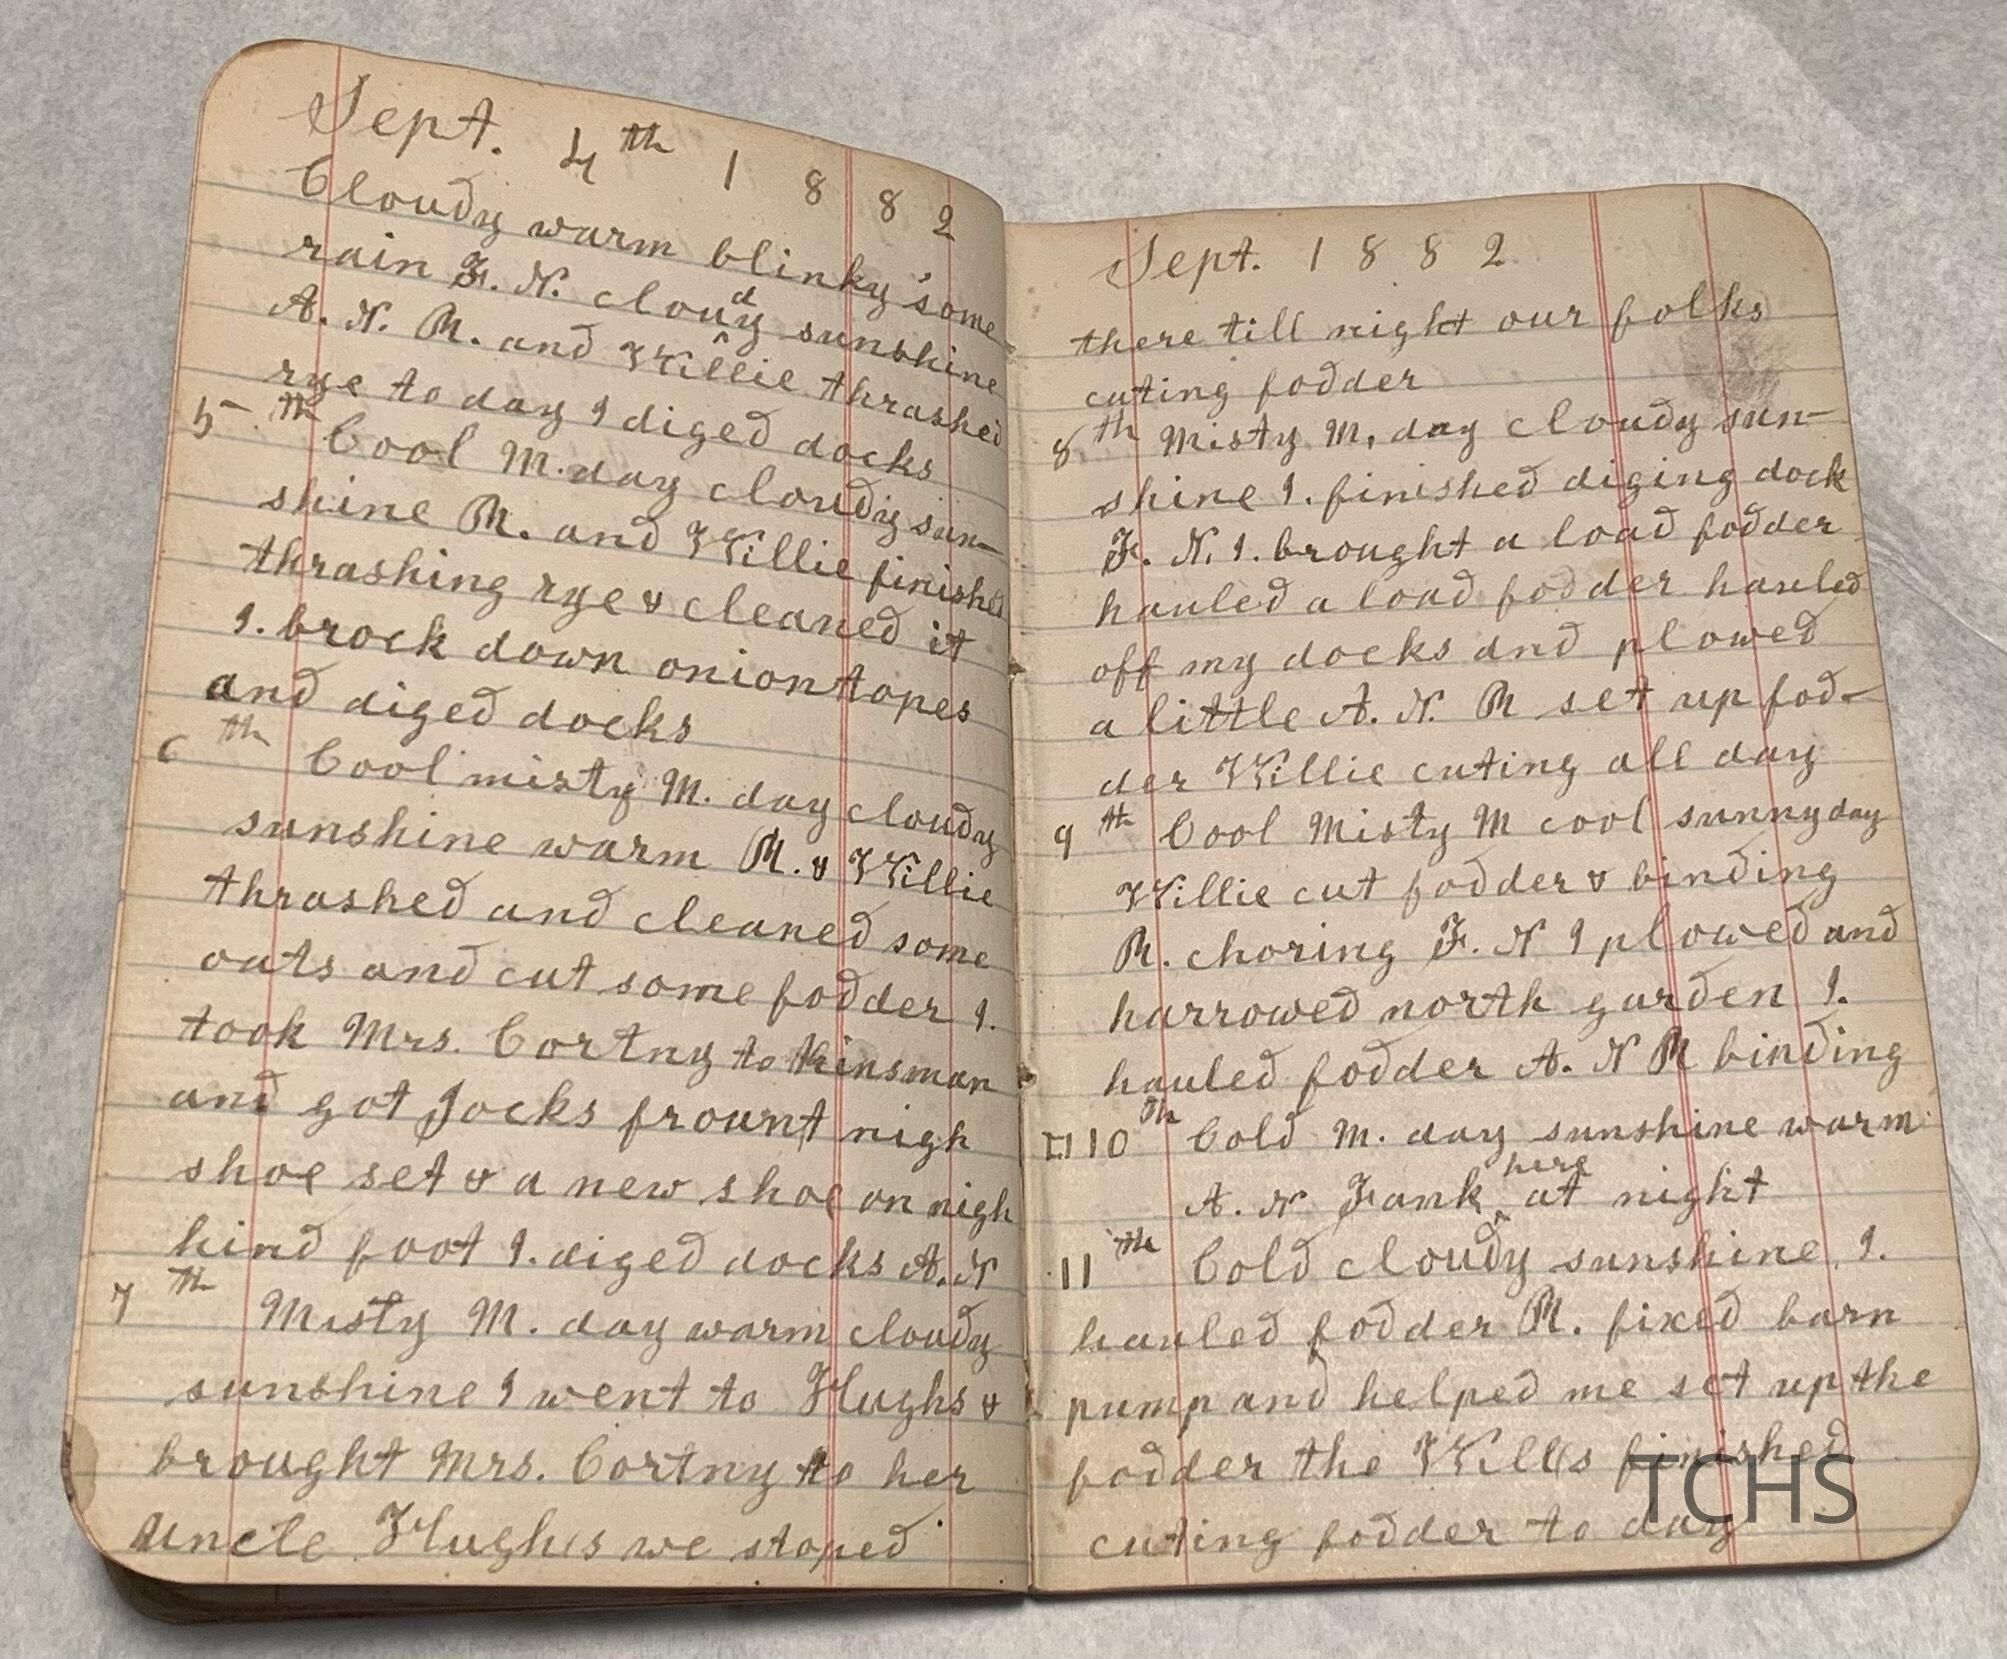 Sept. 4th 1882
Cloudy warm blinky some
rain F. N. cloudy sunshine
A. N. R. and Willie thrashed
rye to day I diged docks
5th Cool M. day cloudy sun-
shine R. and Willie finished
thrashing rye & cleaned it
I. brock down oniontopes
and diged docks
6th Cool misty M. day cloudy
sunshine warm R. & Willie
thrashed and cleaned some
oats and cut some fodder I.
took Mrs. Cortny to Kinsman
and got Jocks frount nigh
shoe set & a new shoe on nigh
hind foot I. diged docks A. N
7th Misty M. day warm cloudy
sunshine I went to Hughs &
brought Mrs. Cortny to her
uncle Hughs we stoped
Sept. 1882
there till night our folks
cuting fodder
8th Misty M. day cloudy sun-
shine I. finished diging dock
F. N. I. brought a load fodder
hauled a load fodder hauled
off my docks and plowed
a little A. N. R set up fod-
der Willie cuting all day
9th Cool Misty M cool sunny day
Willie cut fodder & binding
R. choring F. N I plowed and
harrowed north garden I.
hauled fodder A. N R binding
10th Cold M. day sunshine warm
A. N Fank here at night
11th Cold cloudy sunshine I.
hauled fodder R. fixed barn
pump and helped me set up the
fodder the Wills finished
cuting fodder to day
TCHS